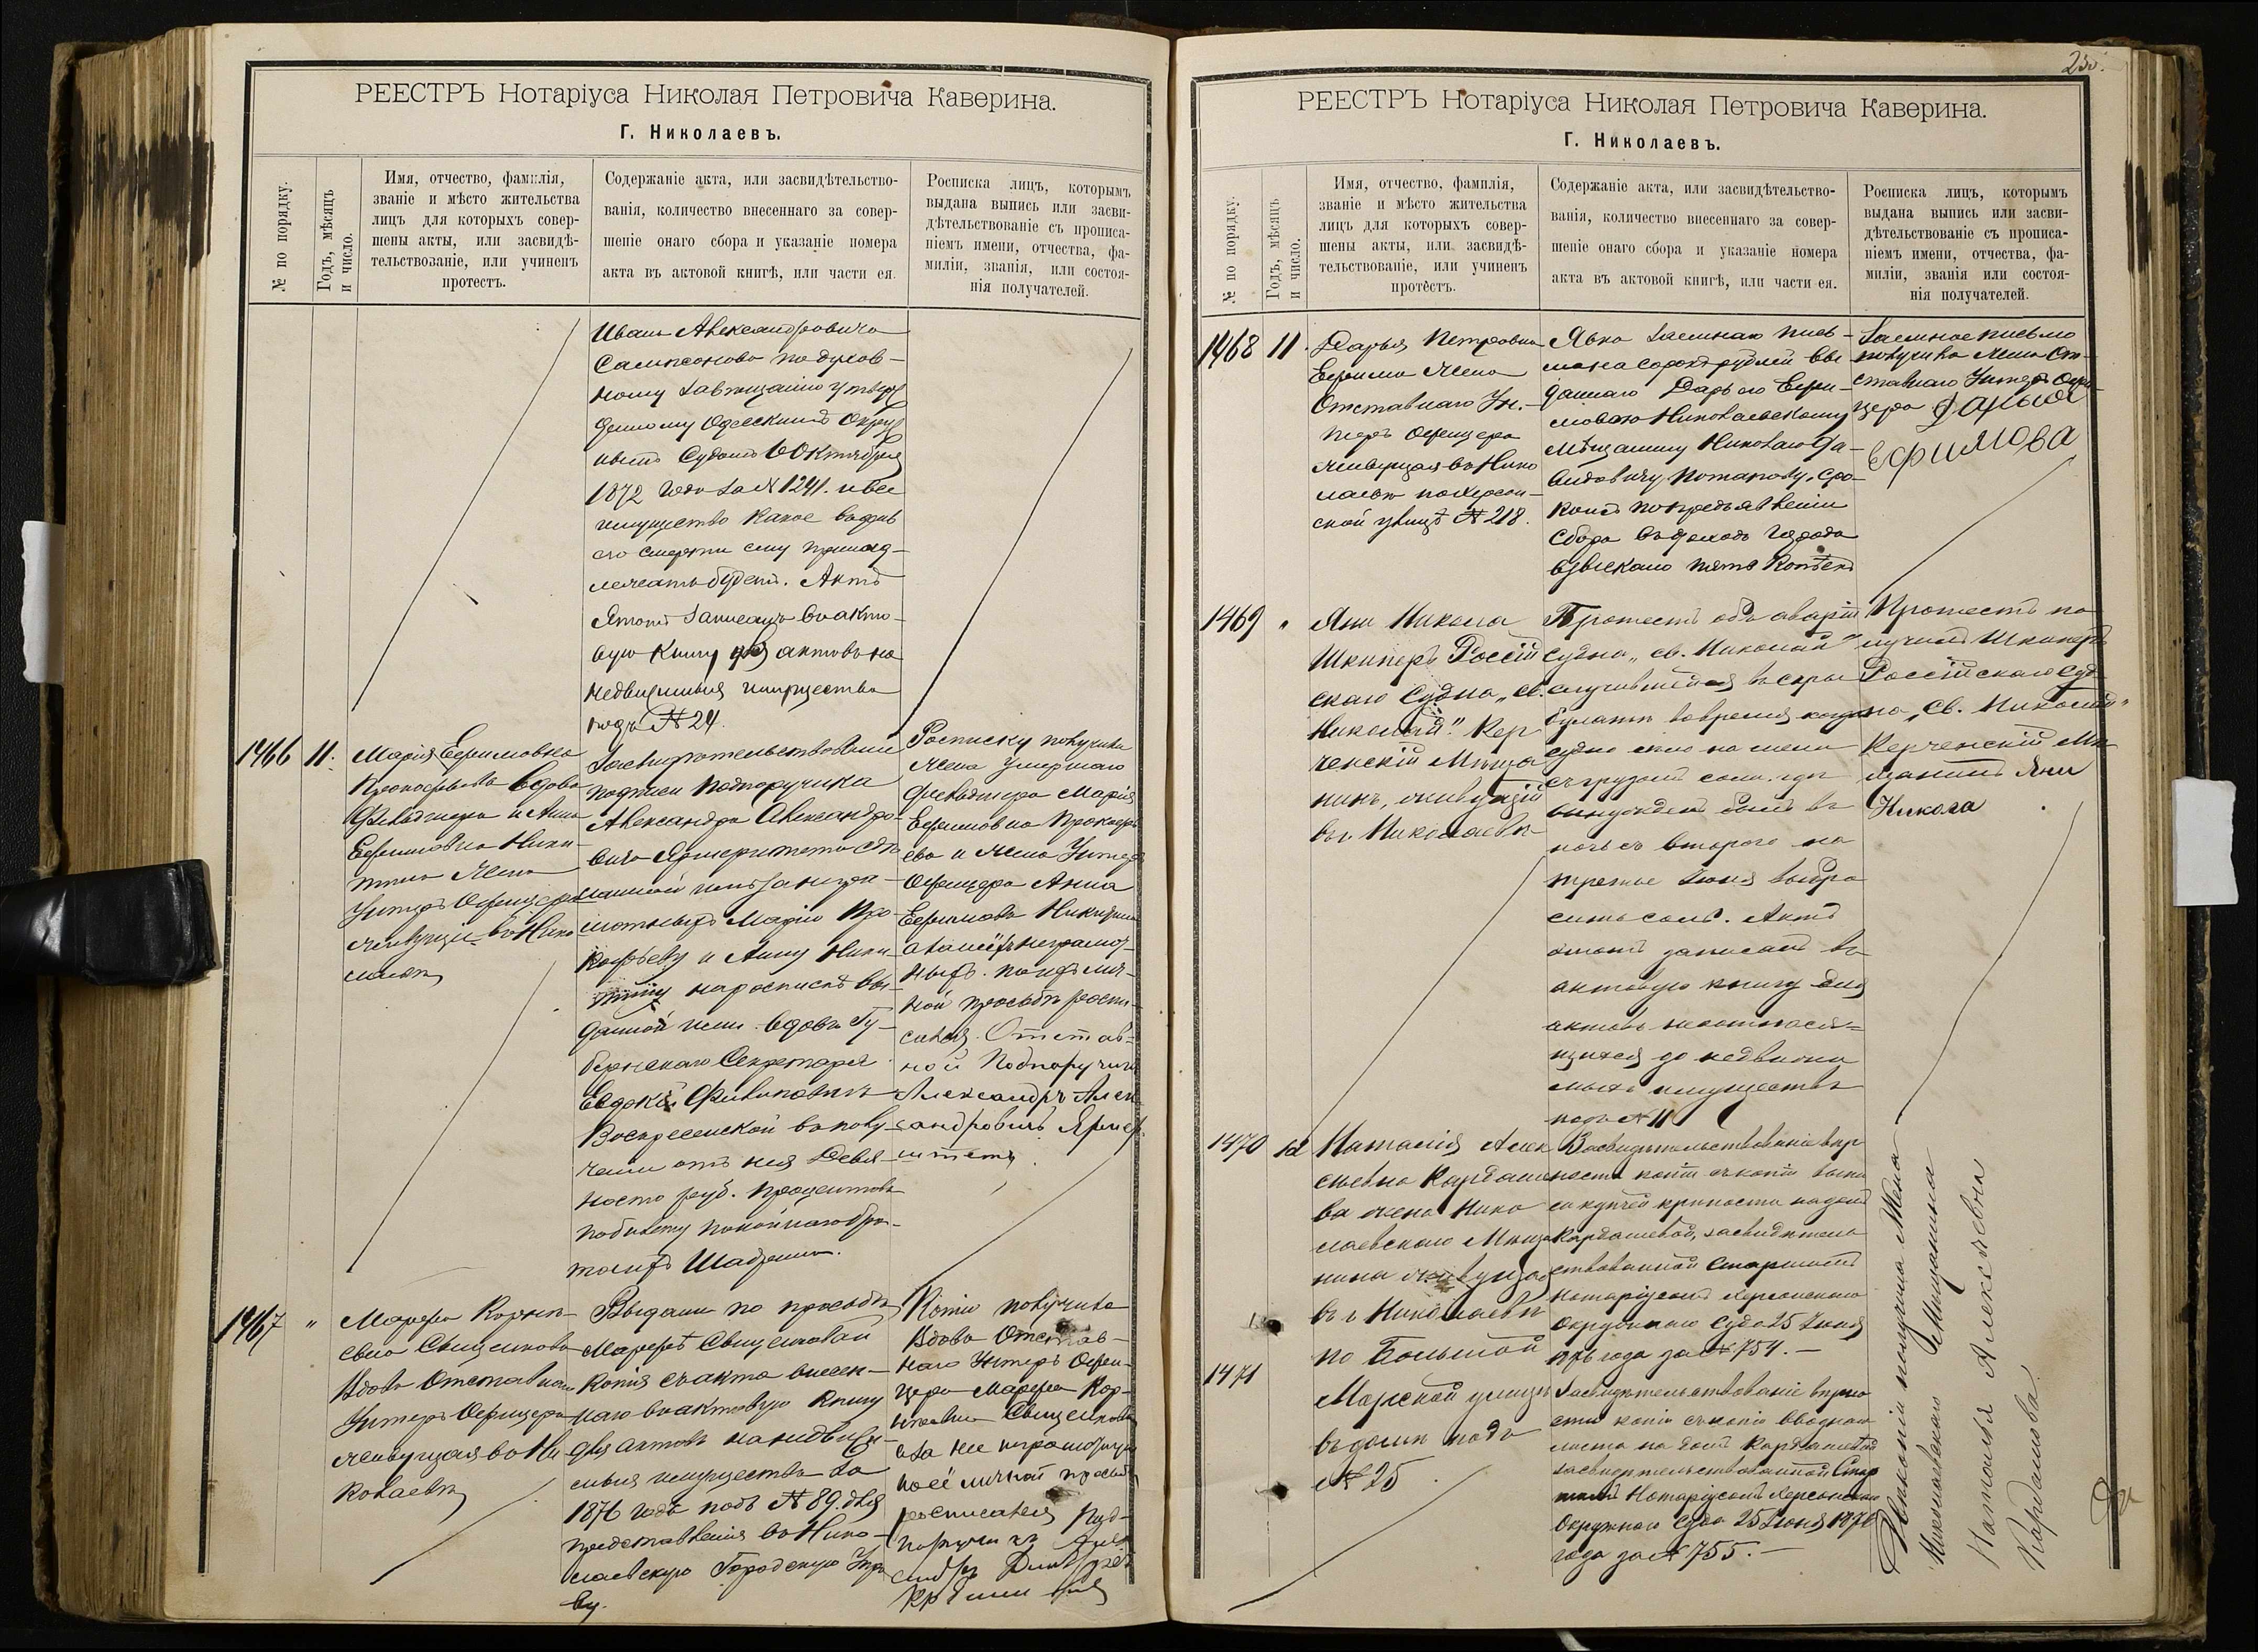 РЕЕСТРЪ Нотаріуса Николая Петровича Каверина.
Г. Николаевъ.
№ по порядку.
Годъ, мѣсяцъ
и число.
Имя, отчество, фамилія,
званіе и мѣсто жительства
лицъ для которыхъ совер-
шены акты, или засвидѣ-
тельствованіе, или учиненъ
протестъ.
Содержаніе акта, или засвидѣтельство-
ванія, количество внесеннаго за совер-
шеніе онаго сбора и указаніе номера
акта въ актовой книгѣ, или части ея.
Росписка лицъ, которымъ
выдана выпись или засви-
дѣтельствованіе съ прописа-
ніемъ имени, отчества, фа-
миліи, званія, или состоя-
нія получателей.
Ивана Александровича
Сампсонова по духов-
ному завѣщанію утверж
денному Одесскимъ Окруж
нымъ Судомъ 6 Октября
1872 года за № 1241. и все
имущество какое въ день
его смерти ему принад-
лежать будетъ. Актъ
этотъ записанъ въ акто-
вую книгу для актовъ на
недвижимыя имущества
подъ № 24.
1466 11.
Марія Ефимовна
Прокофьева вдова
Фельдшера и Анна
Ефимовна Ники-
тина жена
Унтеръ Офицера
живущія въ Нико
лаевѣ
Засвидѣтельствованіе
подписи Подпоручика
Александра Александро-
вича сдѣ
ланной имъ за негра-
мотныхъ Марію Про-
кофьеву и Анну Ники-
тину на роспискѣ вы-
данной ими вдовѣ Гу-
бернскаго Секретаря
Евдокіи Филиповнѣ
Воскресенской въ полу-
ченіи отъ нея Девя-
носто руб. процентовъ
по билету покойнаго бра-
та ихъ
Росписку получила
жена умершаго
фельдшера Марія
Ефимовна Прокофь
ева и жена Унтеръ
Офицера Анна
Ефимова Никитина
а за нихъ неграмот-
ныхъ по ихъ лич-
ной просьбѣ роспи-
сался Отстав=
ной Подпоручикъ
Александръ Алек
сандровичъ
1467 "
Марфа Корнѣ-
евна Свищенкова
Вдова Отставнаго
Унтеръ Офицера
живущая въ Ни
колаевѣ
Выдана по просьбѣ
Марфѣ Свищенковой
копія съ акта внесен-
наго въ актовую книгу
для актовъ на недвижи-
мыя имущества за
1876 годъ подъ № 89. для
представленія въ Нико-
лаевскую Городскую Упра
ву.
Копію получила
Вдова Отстав-
наго Унтеръ Офи-
цера Марфа Кор-
нѣевна Свищенкова
а за нее неграмотную
по её личной просьбѣ
росписался Под-
поручикъ
РЕЕСТРЪ Нотаріуса Николая Петровича Каверина.
Г. Николаевъ.
№ по порядку.
Годъ, мѣсяцъ
и число.
Имя, отчество, фамилія,
званіе и мѣсто жительства
лицъ для которыхъ совер-
шены акты, или засвидѣ-
тельствованіе, или учиненъ
протестъ.
Содержаніе акта, или засвидѣтельство-
ванія, количество внесеннаго за совер-
шеніе онаго сбора и указаніе номера
акта въ актовой книгѣ, или части ея.
Росписка лицъ, которымъ
выдана выпись или засви-
дѣтельствованіе съ прописа-
ніемъ имени, отчества, фа-
миліи, званія или состоя-
нія получателей.
1468 11.
Дарья Петровна
Ефимова жена
Отставнаго Ун-
теръ офицера
живущая въ Нико
лаевѣ по Херсон-
ской улицѣ № 218.
Явка заемнаго пись-
ма на сорокъ рублей вы-
даннаго Дарьею Ефи-
мовою Николаевскому
мѣщанину Николаю Да-
видовичу Потапову, сро-
комъ по предъявленіи
сбора въ доходъ города
взыскано пять копѣекъ
Заемное письмо
получила жена От-
ставнаго Унтеръ Офи-
цера Дарья
Ефимова
1469 "
Яни Никола
Шкиперъ Россій
скаго судна „св.
Николай". Кер
ченскій Мѣща
нинъ, живущій
въ г. Николаевѣ
Протестъ объ аваріи
судна „св. Николай"
случившейся въ
во время когда
судно сѣло на мели
съ грузомъ соли. гдѣ
вынужденъ былъ въ
ночь съ второго на
третье Іюня выбро
сить соль. Актъ
этотъ записанъ въ
актовую книгу для
актовъ неотнося=
щихся до недвижи
мыхъ имуществъ
подъ № 11
Протестъ по
лучилъ Шкиперъ
Россійскаго Суд
на „Св. Николай"
Керченскій Мѣ
щанинъ Яни
Никола
1470 12
Наталія Алек
сѣевна Кардаше
ва жена Нико
лаевскаго Мѣща
нина живущая
въ г. Николаевѣ
по Большой
Морской улицѣ
въ домѣ подъ
№ 25
Засвидѣтельствованіе вѣр
ности копіи съ копіи выпи
си купчей крѣпости на домъ
Кардашевой, засвидѣтель
ствованной Старшимъ
Нотаріусомъ Херсонскаго
Окружнаго Суда 25 Іюня
1876 года за № 754.-
1471
Засвидѣтельствованіе вѣрно
сти копіи съ копіи вводнаго
листа на домъ Кардашевой
засвидѣтельствованной Стар
шимъ Нотаріусомъ Херсонскаго
Окружнаго Суда 25 Іюня 1876
года за № 755.-
копіи получила Жена
Николаевскаго Мѣщанина
Наталья Алексѣевна
Кардашова